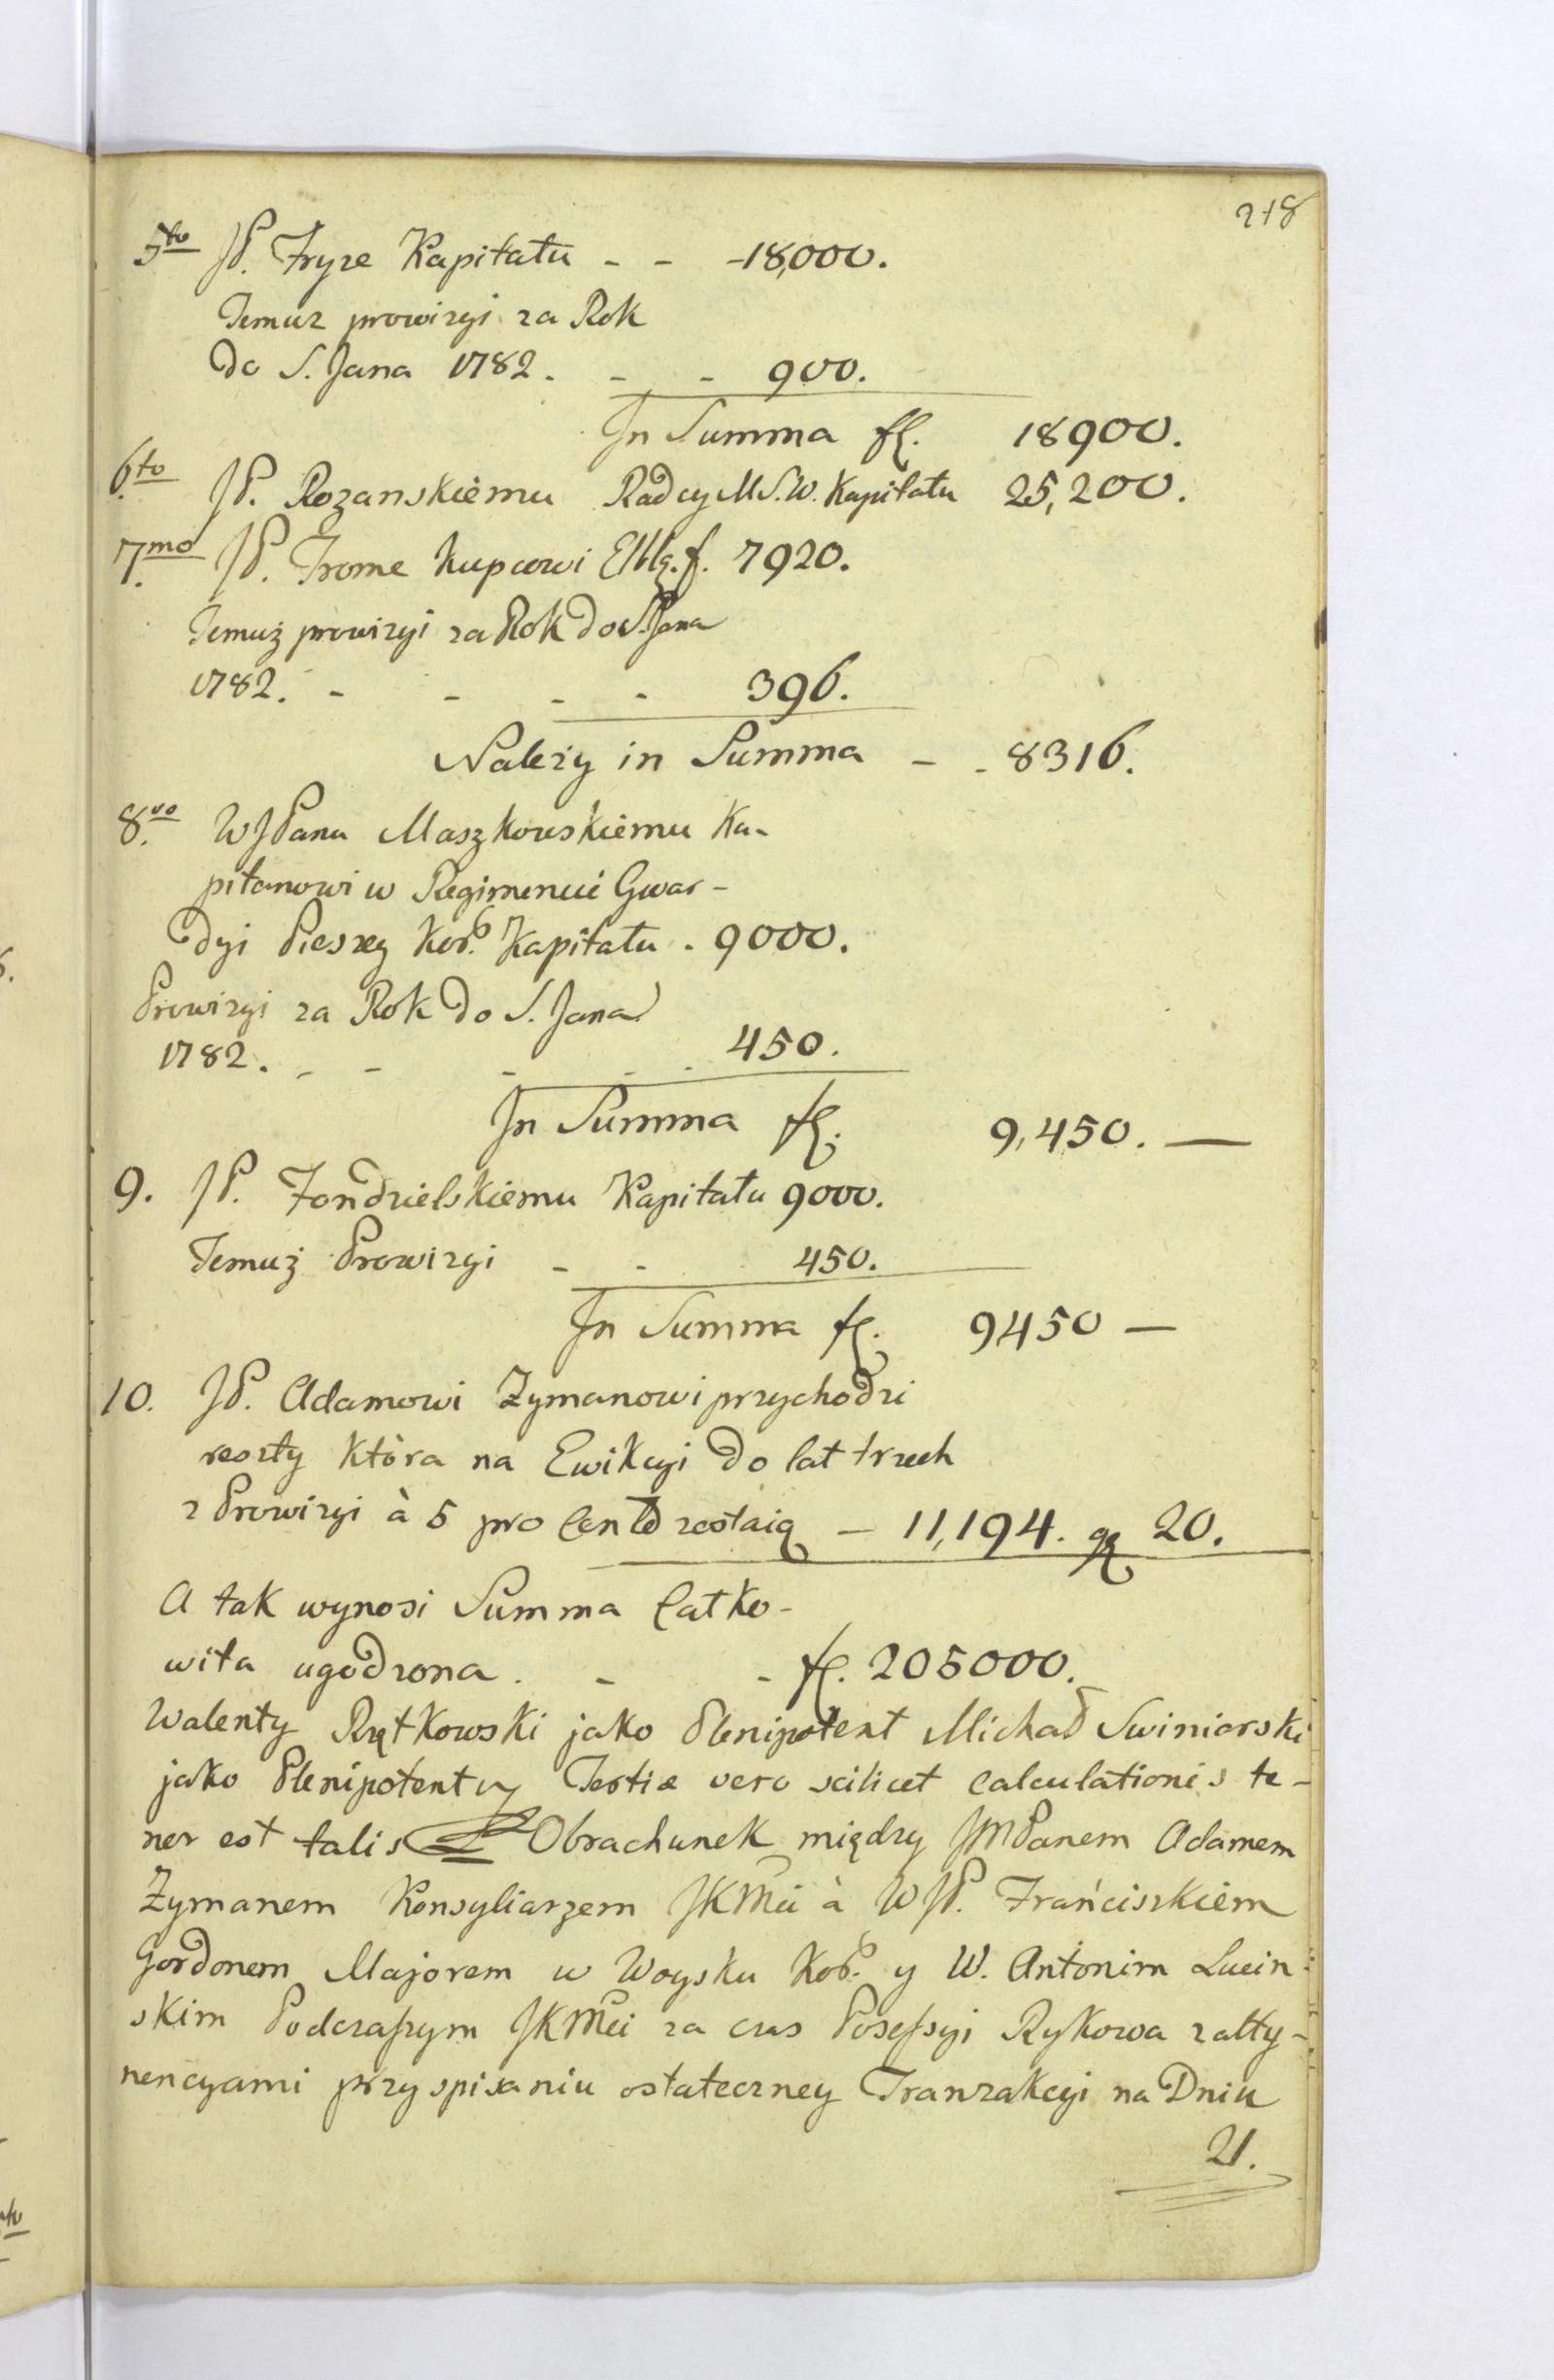 218
5to JP. Fryze Kapitału - - - 18,000.
Temuz prowizyi za Rok
do S. Jana 1782. - - 900.
In Summa fl. 18900.
6to JP. Rozanskiemu Radcy M.S.W. Kapitału 25,200.
7.mo JP. Frome Kupcowi Elblg. f. 7920.
Temuż prowizyi za Rok do S. Jana
1782. - - - - 396.
Należy in Summa - - 8316.
8.vo WJPanu Maszkowskiemu Ka-
pitanowi w Regimencie Gwar-
dyi Pieszey Kor. Kapitału. 9000.
Prowizyi za Rok do S. Jana
1782. - - - - - 450.
In Summa fl. 9,450. —
9. JP. Fondzielskiemu Kapitału 9000.
Temuż Prowizyi - - 450.
In Summa fl. 9450 —
10. JP. Adamowi Zymanowi przychodzi
reszty która na Ewikcyi do lat trzech
z Prowizyi à 5 pro Cento zostaią — 11,194. gr 20.
A tak wynosi Summa Całko-
wita ugodzona. - - fl. 205000.
Walenty Rętkowski jako Plenipotent Michał Swiniarski
jako Plenipotent Tertiæ vero scilicet calculationis te-
nor est talis Obrachunek między JMPanem Adamem
Zymanem Konsyliarzem JKMci à WJP. Frańciszkiem
Gordonem Majorem w Woysku Kor. y W. Antonim Lucin-
skim Podczaszym JKMci za czas Possessyi Rykowa z atty-
nencyami przy spisaniu ostateczney Tranzakcyi na Dniu
21.